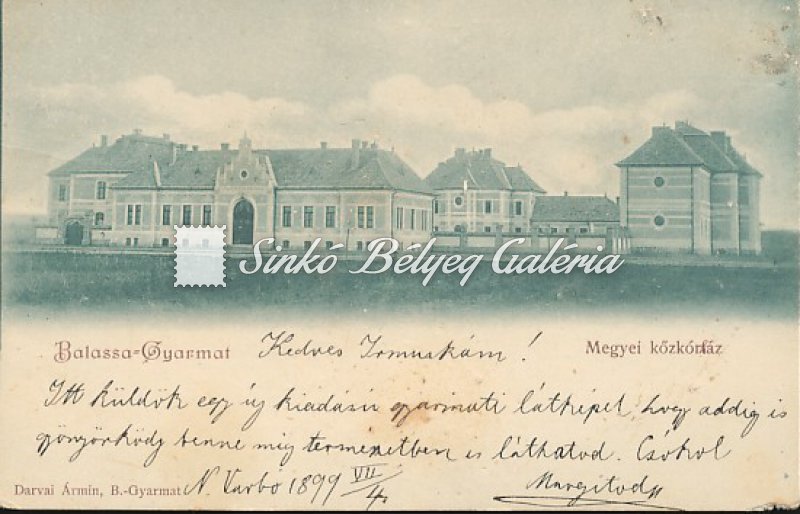 Sinkó Bélyeg Galéria
Balassa-Gyarmat
Kedves Irmuskám!
Megyei kőzkórház
Itt küldök egy új kiadású gyarmati látképet, hogy addig is
gyönyörködj benne mig termenetben is láthatod. Csókol
Margitod
N. Varbó 1899 VII/4
Darvai Ármin, B.-Gyarmat